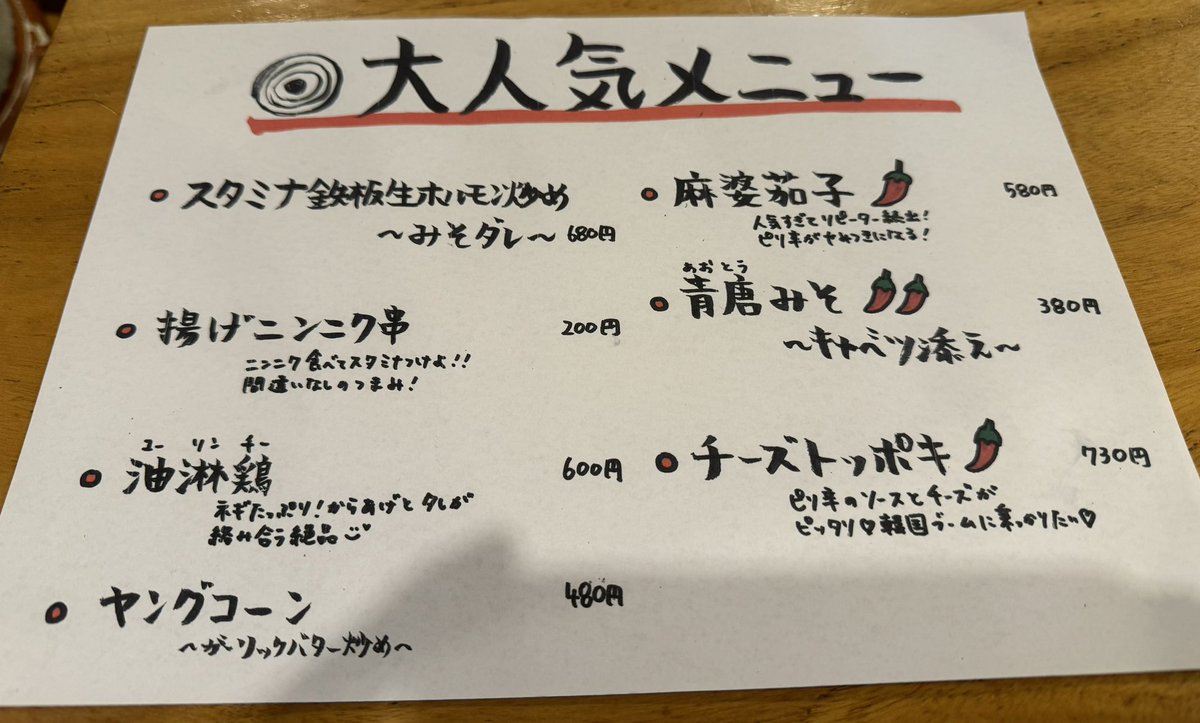 大人気メニュー
スタミナ鉄板生ホルモン炒め
〜みそダレ〜 680円
揚げニンニク串 200円
ニンニク食べてスタミナつけよ!!
間違いなしのつまみ!
ユーリンチー
油淋鶏 600円
ネギたっぷり!からあげとタレが
絡み合う絶品
ヤングコーン 480円
〜ガーリックバター炒め〜
麻婆茄子 580円
人気すぎてリピーター続出!
ピリ辛がやみつきになる!
あおとう
青唐みそ 380円
〜キャベツ添え〜
チーズトッポキ 730円
ピリ辛のソースとチーズが
ピッタリ♡韓国ブームに乗っかりたい♡